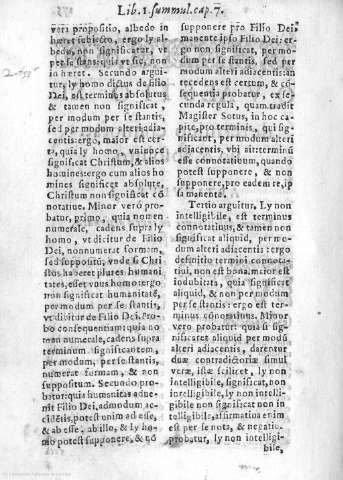 Lib. 1. summul. cap. 7.
vera propositio, albedo in
hæret subiecto, ergo ly al-
bedo, non significatur, vt
per se stans equi vt sic, non
inhæret. Secundo argui-
tur, ly homo dictus de filio
Dei, est terminus absolutus
& tamen non significat,
per modum per se stantis,
sed per modum alteri adia-
centis: ergo, maior est cer-
ta, quia ly homo, vniuoce
significat Christum, & alios
homines: ergo cum alios ho
mines significet absolute,
Christum non significat cō
notatiue. Minor verò pro-
batur, primo, quia nomen
numerale, cadens supra ly
homo, vt dicitur de Filio
Dei, non numerat formam,
sed suppositū, vnde si Chri
stus haberet plures humani
tates, esset vnus homo: ergo
non significat humanitatē,
per modum per se stantis,
vt dicitur de Filio Dei. Pro-
bo consequentiam: quia no
men numerale, cadens supra
terminum significantem,
per modum, per se stantis,
numerat formam, & non
suppositum. Secundo pro-
batur: quia humanitas adue-
nit Filio Dei, ad modum ac
cidētis, potest enim ad esse,
& ab esse, ab illo, & ly ho-
mo potest supponere, & nō
supponere pro Filio Dei
manente ipso Filio Dei: er-
go non significat, per mo-
dum per se stantis, sed per
modum alteri adiacentis: an
tecedens est certum, & cō-
sequentia probatur, ex se-
cunda regula, quam tradit
Magister Sotus, in hoc ca-
pite, pro terminis, qui sig-
nificant, per modum alteri
adiacentis, vbi ait: terminū
esse connotatiuum, quando
potest supponere, & non
supponere, pro eadem re, ip
sa manente.
Tertio arguitur. Ly non
intelligibile, est terminus
connotatiuus, & tamen non
significat aliquid, per mo-
dum alteri adiacentis: ergo
definitio termini connota-
tiui, non est bona. maior est
indubitata, quia significat
aliquid, & non per modum
per se stantis: ergo est ter-
minus connotatiuus. Minor
vero probatur: quia si sig-
nificaret aliquid per modū
alteri adiacentis, darentur
duæ contradictoriæ simul
veræ, istæ scilicet, ly non
intelligibile, significat, non
intelligibile, ly non intelli-
gibile non significat non in
telligibile, affirmatiua enim
est per se nota, & negatio-
probatur, ly non intelligi-
bile,